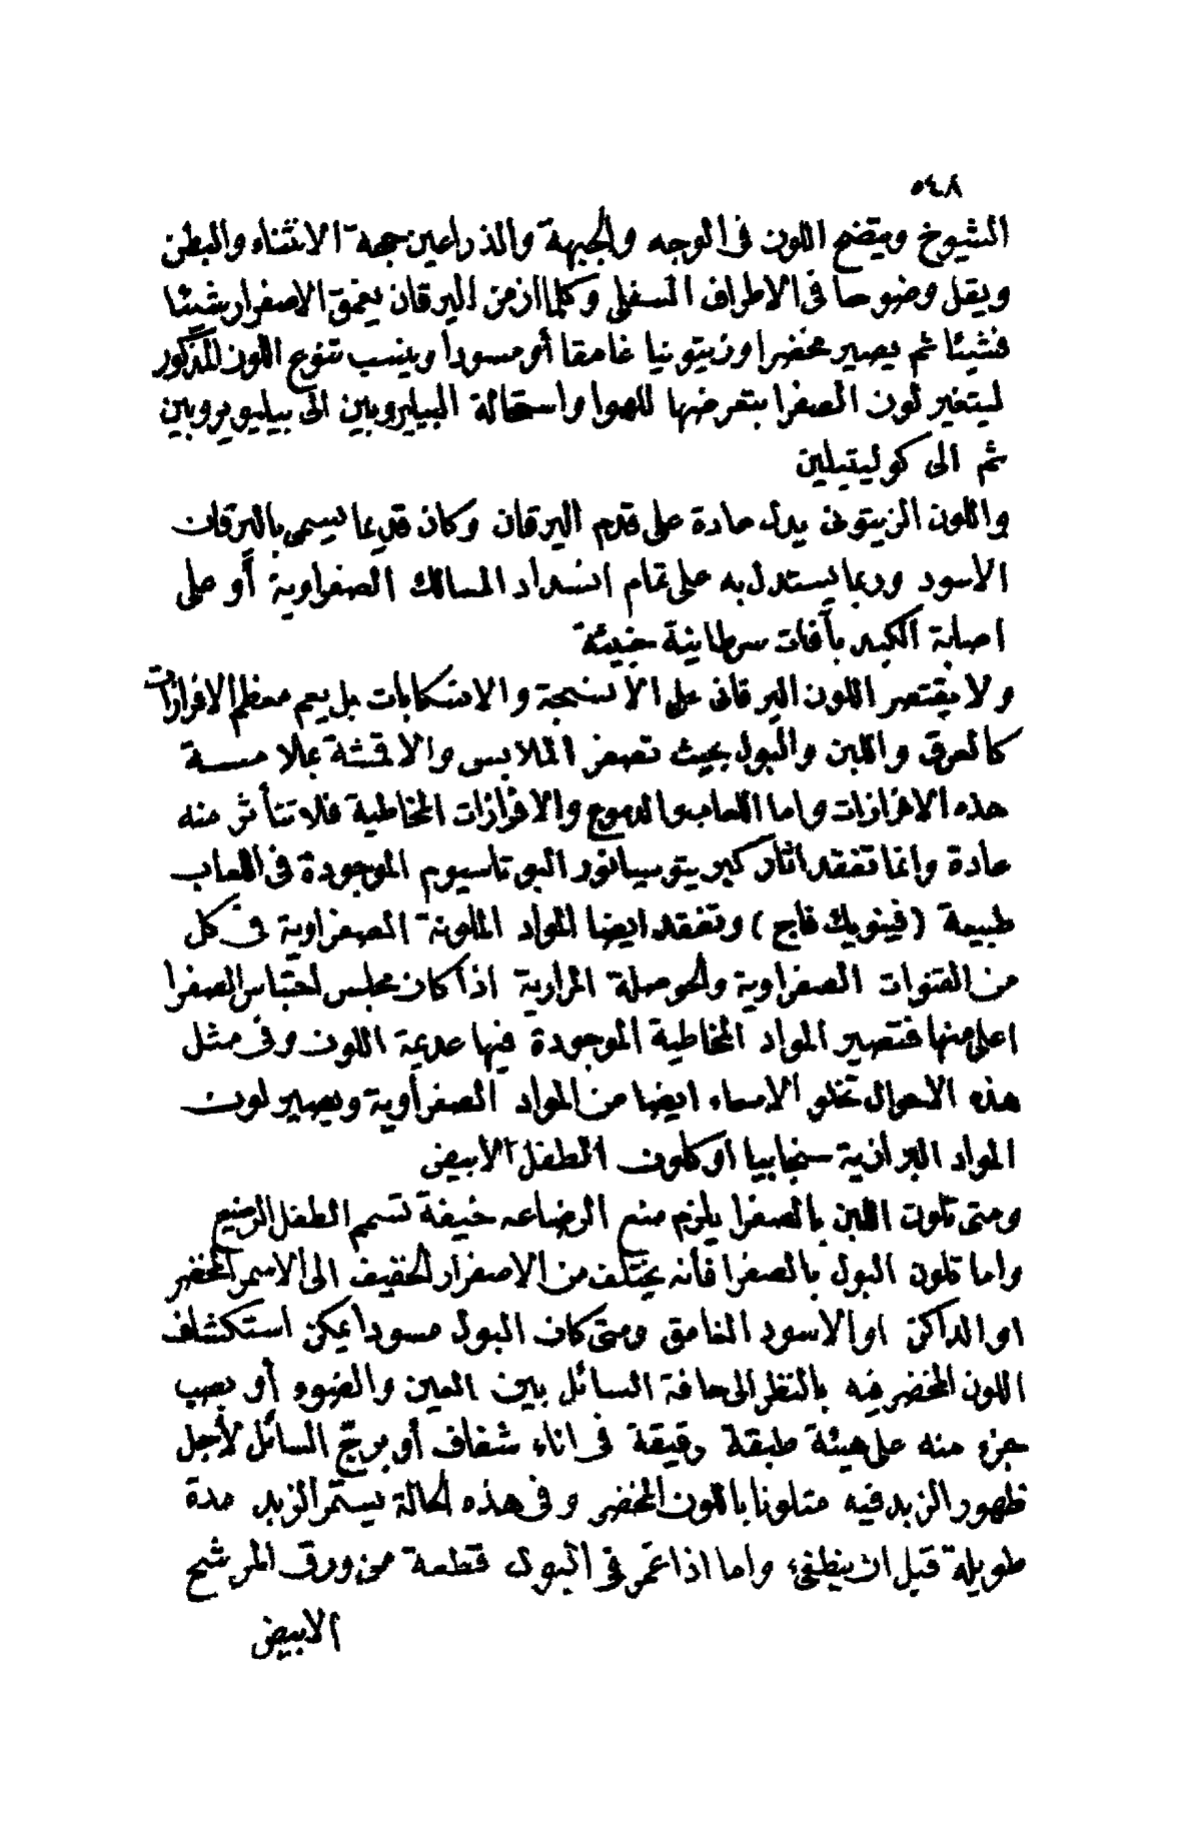 ٥٤٨
الشيوخ ويتضح اللون فى الوجه والجبهة والذراعين جهة الانثناء والبطن
ويقل وضوحا فى الاطراف السفلى وكلما ازمن اليرقان يعمق الاصفرار شيئا
فشيئا ثم يصير مخضرا او زيتونيا غامقا أو مسودا وينسب تنوع اللون المذكور
ليتغير لون الصفرا بتعرضها للهوا واستحالة البيليروبين الى بيليويروبين
ثم الى كوليتيلين
واللون الزيتونى يدل عادة على قدم اليرقان وكان قديما يسمى باليرقان
الاسود وربما يستدل به على تمام انسداد المسالك الصفراوية أو على
اصابة الكبد بآفات سرطانية خبيثة
ولا يقتصر اللون اليرقانى على الانسجة والانسكابات بل يعم معظم الافرازات
كالعرق واللبن والبول بحيث تصفر الملابس والاقمشة بملامسة
هذه الافرازات واما اللعاب والدموع والافرازات المخاطية فلا تتأثر منه
عادة وانما تفقد اثار كبريتوسيانور البوتاسيوم الموجودة فى اللعاب
طبيعة (فينويك فاج) وتفقد ايضا المواد الملونة الصفراوية فى كل
من القنوات الصفراوية والحوصلة المرارية اذا كان مجلس احتباس الصفرا
اعلى منها فتصير المواد المخاطية الموجودة فيها عديمة اللون وفى مثل
هذه الاحوال تخلو الامعاء ايضا من المواد الصفراوية ويصير لون
المواد البرازية سنجابيا او كلون الطفل الابيض
ومتى تلون اللبن بالصفرا يلزم منع الرضاعه خيفة تسمم الطفل الرضيع
واما تلون البول بالصفرا فأنه يختلف من الاصفرار الخفيف الى الاسمر المخضر
او الداكن او الاسود الغامق ومتى كان البول مسودا يمكن استكشاف
اللون المخضر فيه بالنظر الى حافة السائل بين العين والضوء أو بصب
جزء منه على هيئة طبقة رقيقة فى اناء شفاف أو برج السائل لأجل
ظهور الزبد فيه متلونا باللون المخضر وفى هذه الحالة يستمر الزبد مدة
طويلة قبل ان ينطفىء واما اذا غمر فى البول قطعة من ورق المرشح
الابيض